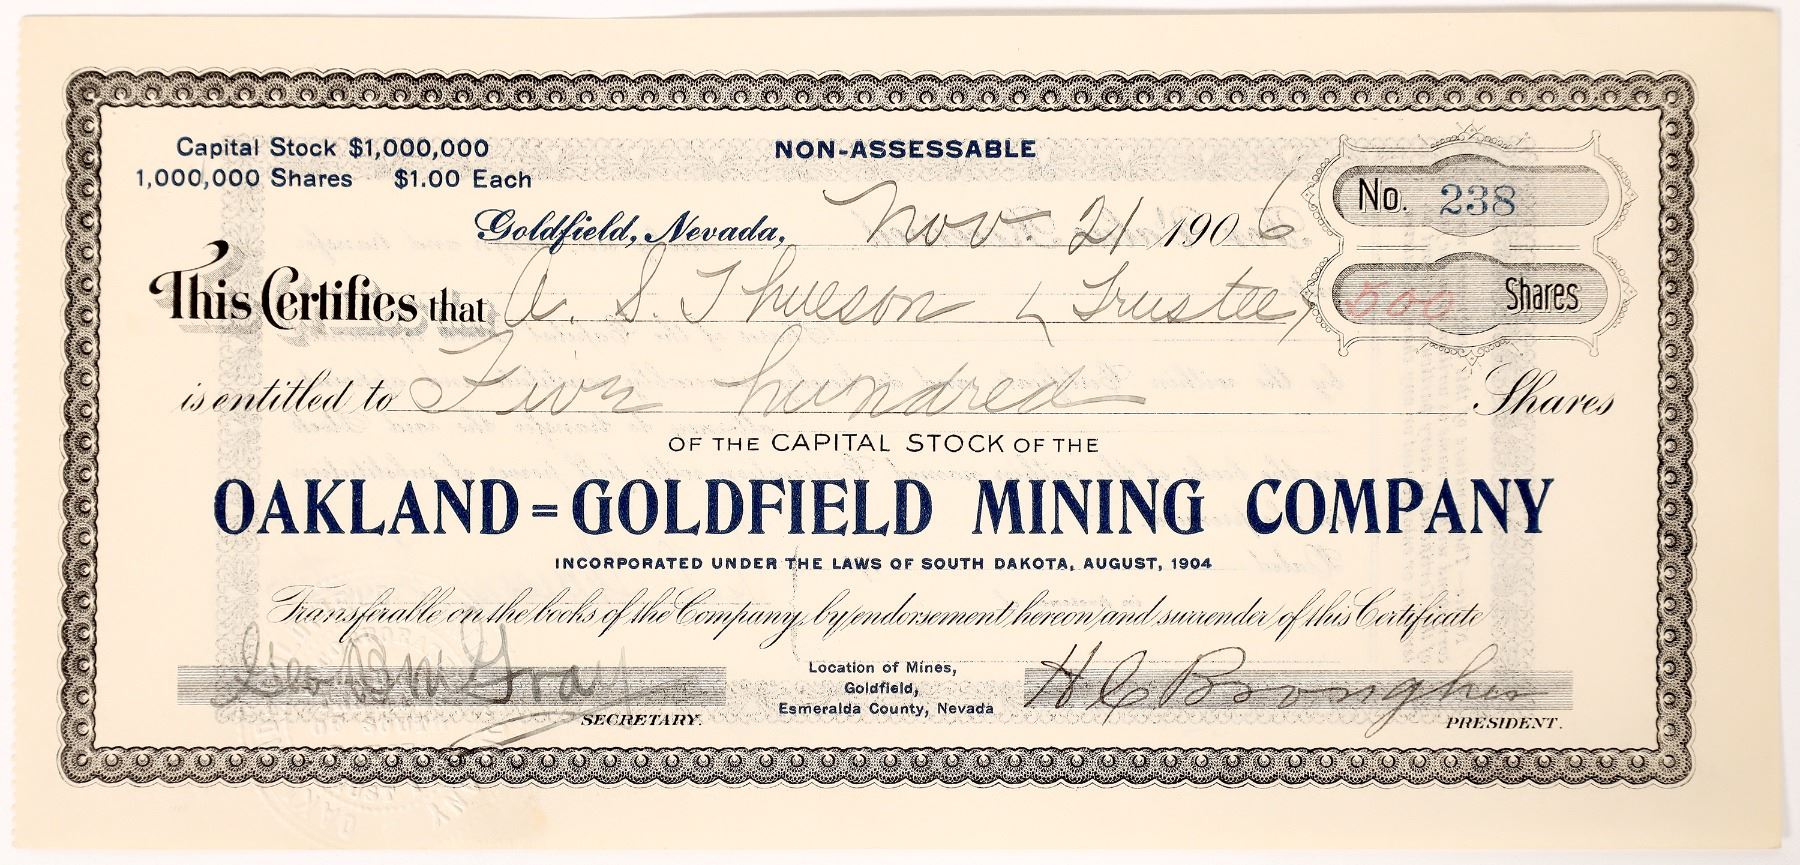 Capital Stock $1,000,000
1,000,000 Shares $1.00 Each
NON-ASSESSABLE
No. 238
Goldfield, Nevada, Nov. 21 1906
This Certifies that A. S. Thueson (Trustee)
500 Shares
is entitled to Five hundred Shares
OF THE CAPITAL STOCK OF THE
OAKLAND=GOLDFIELD MINING COMPANY
INCORPORATED UNDER THE LAWS OF SOUTH DAKOTA, AUGUST, 1904
Transferable on the books of the Company, by endorsement hereon and surrender of this Certificate
Geo B M Gray
SECRETARY.
Location of Mines,
Goldfield,
Esmeralda County, Nevada
H C
PRESIDENT.